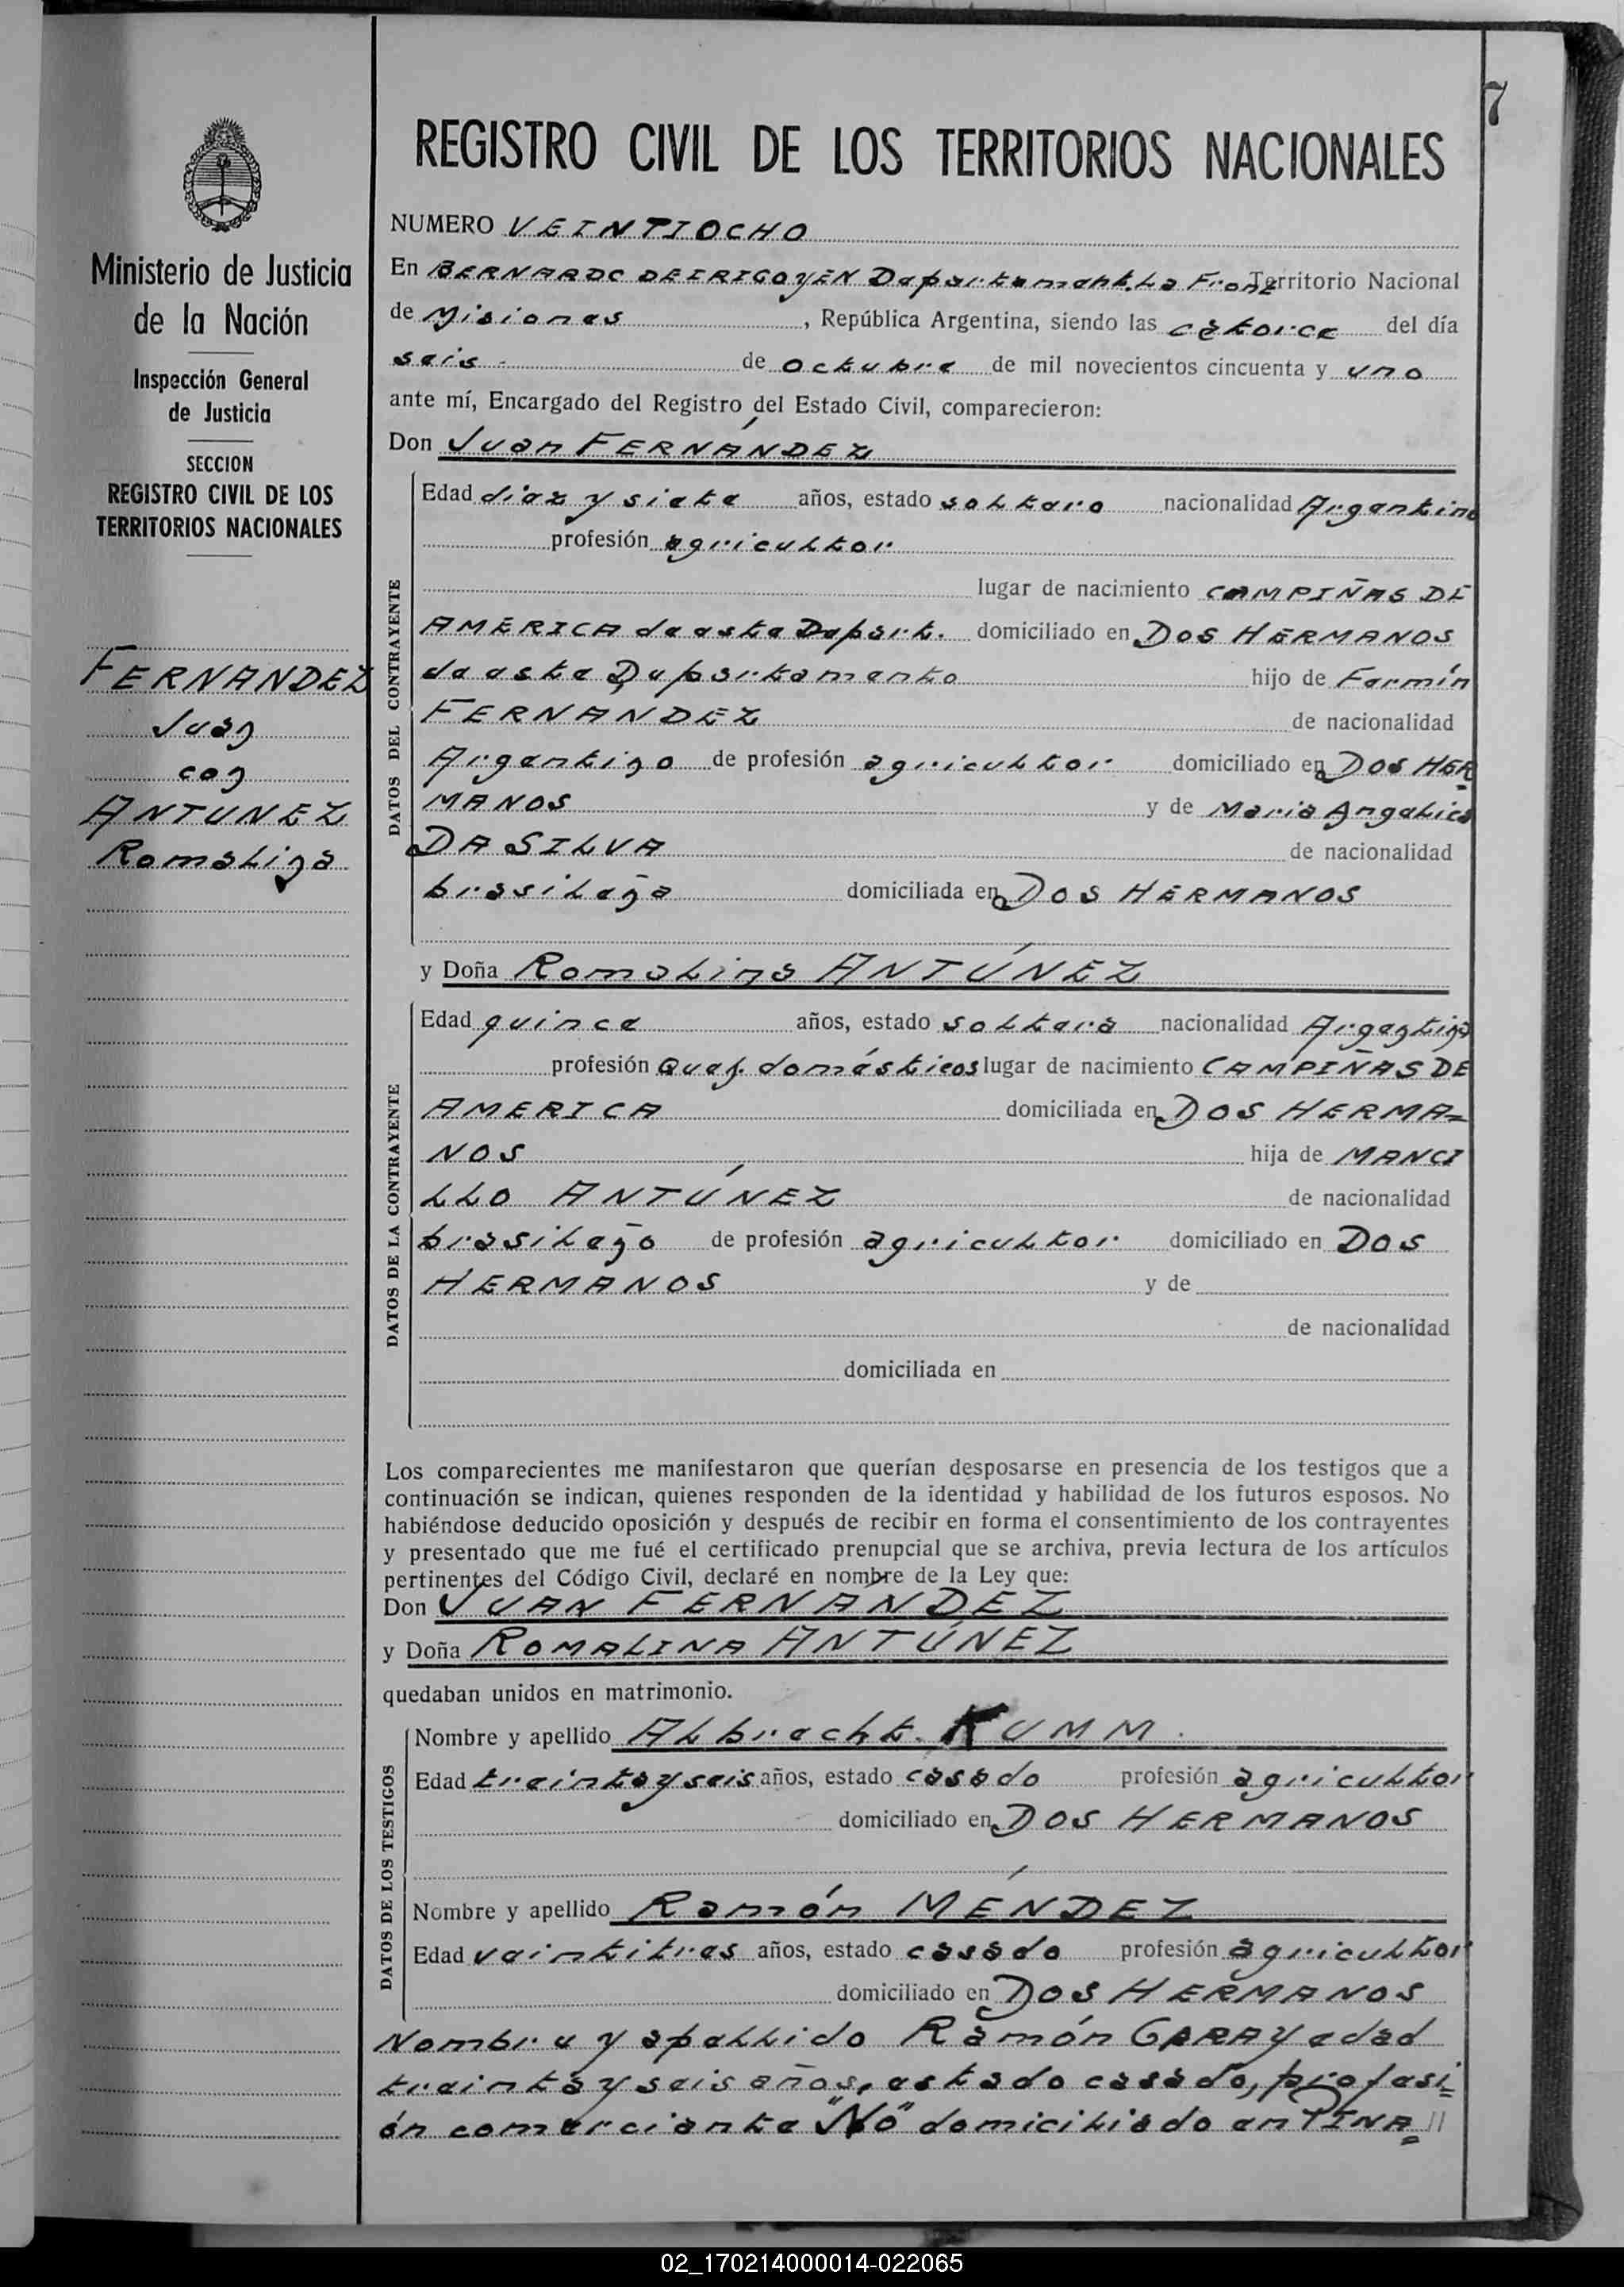 7
REGISTRO CIVIL DE LOS TERRITORIOS NACIONALES
Ministerio de Justicia
de la Nación
Inspección General
de Justicia
SECCION
REGISTRO CIVIL DE LOS
TERRITORIOS NACIONALES
FERNANDEZ
Juan
con
ANTUNEZ
Romalina
NUMERO VEINTIOCHO
En BERNARDO DE IRIGOYEN Departament. La Front Territorio Nacional
de Misiones, República Argentina, siendo las catorce del día
seis de octubre de mil novecientos cincuenta y uno
ante mí, Encargado del Registro del Estado Civil, comparecieron:
Don Juan FERNÁNDEZ
DATOS DEL CONTRAYENTE
Edad diez y siete años, estado soltero nacionalidad Argentino
profesión agricultor
lugar de nacimiento CAMPIÑAS DE
AMERICA de este Depart. domiciliado en DOS HERMANOS
de este Departamento hijo de Fermín
FERNANDEZ de nacionalidad
Argentino de profesión agricultor domiciliado en DOS HER
MANOS y de Maria Angelica
DA SILVA de nacionalidad
brasileña domiciliada en DOS HERMANOS
y Doña Romalina ANTÚNEZ
DATOS DE LA CONTRAYENTE
Edad quince años, estado soltera nacionalidad Argentina
profesión Queh. domésticos lugar de nacimiento CAMPIÑAS DE
AMERICA domiciliada en DOS HERMA=
NOS hija de MANCI
LLO ANTÚNEZ de nacionalidad
brasileño de profesión agricultor domiciliado en DOS
HERMANOS y de
de nacionalidad
domiciliada en
Los comparecientes me manifestaron que querían desposarse en presencia de los testigos que a
continuación se indican, quienes responden de la identidad y habilidad de los futuros esposos. No
habiéndose deducido oposición y después de recibir en forma el consentimiento de los contrayentes
y presentado que me fué el certificado prenupcial que se archiva, previa lectura de los artículos
pertinentes del Código Civil, declaré en nombre de la Ley que:
Don JUAN FERNÁNDEZ
y Doña ROMALINA ANTÚNEZ
quedaban unidos en matrimonio.
DATOS DE LOS TESTIGOS
Nombre y apellido Albrecht. KUMM.
Edad treinta y seis años, estado casado profesión agricultor
domiciliado en DOS HERMANOS
Nombre y apellido Ramón MÉNDEZ
Edad veintitres años, estado casado profesión agricultor
domiciliado en DOS HERMANOS
Nombre y apellido Ramón GARAY edad
treinta y seis años, estado casado, profesi=
ón comerciante "No" domiciliado en PINA //
02_170214000014-022065